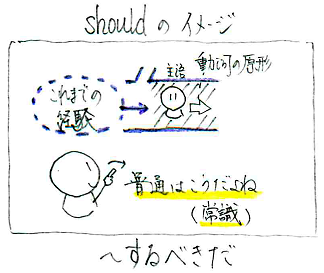 shouldのイメージ
主語 動詞の原形
これまでの
経験
普通はこうだよね
(常識)
〜するべきだ